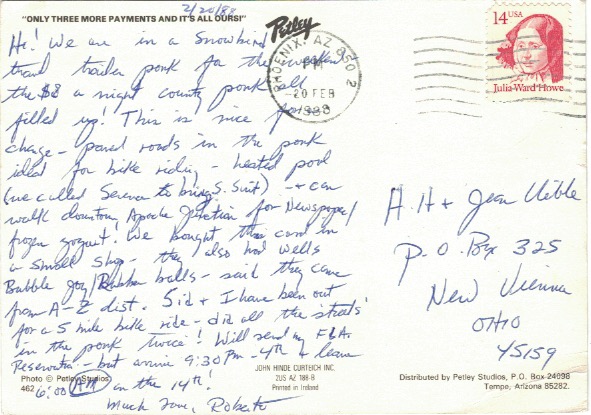 2/20/88
"ONLY THREE MORE PAYMENTS AND IT'S ALL OURS!"
Petley
PHOENIX, AZ 850 2
PM
20 FEB
1988
14 USA
Julia Ward Howe
Hi! We are in a Snowbird
travel trailer park for the weekend
the $8 a night county park all
filled up! This is nice for
change - paved roads in the park
ideal for bike riding - heated pool
(we called to bring S. Suit) - + can
walk downtown Apache Junction for Newspaper/
frozen yogurt! We bought this card in
a small shop - they also had Wells
Bubble Joy/ balls - said they came
from A-Z dist. Sid + I have been out
for a 5 mile bike ride - did all the streets
in the park twice! Will send my FLA.
Reservation - but arrive 9:30 PM - 4th + leave
6:00 AM on the 14th!
Much Love, Roberta
A.H + Jean Kibble
P.O. Box 325
New Vienna
OHIO
45159
Photo © Petley Studios
462
JOHN HINDE CURTEICH INC.
2US AZ 188-B
Printed in Ireland
Distributed by Petley Studios, P.O. Box 24698
Tempe, Arizona 85282.